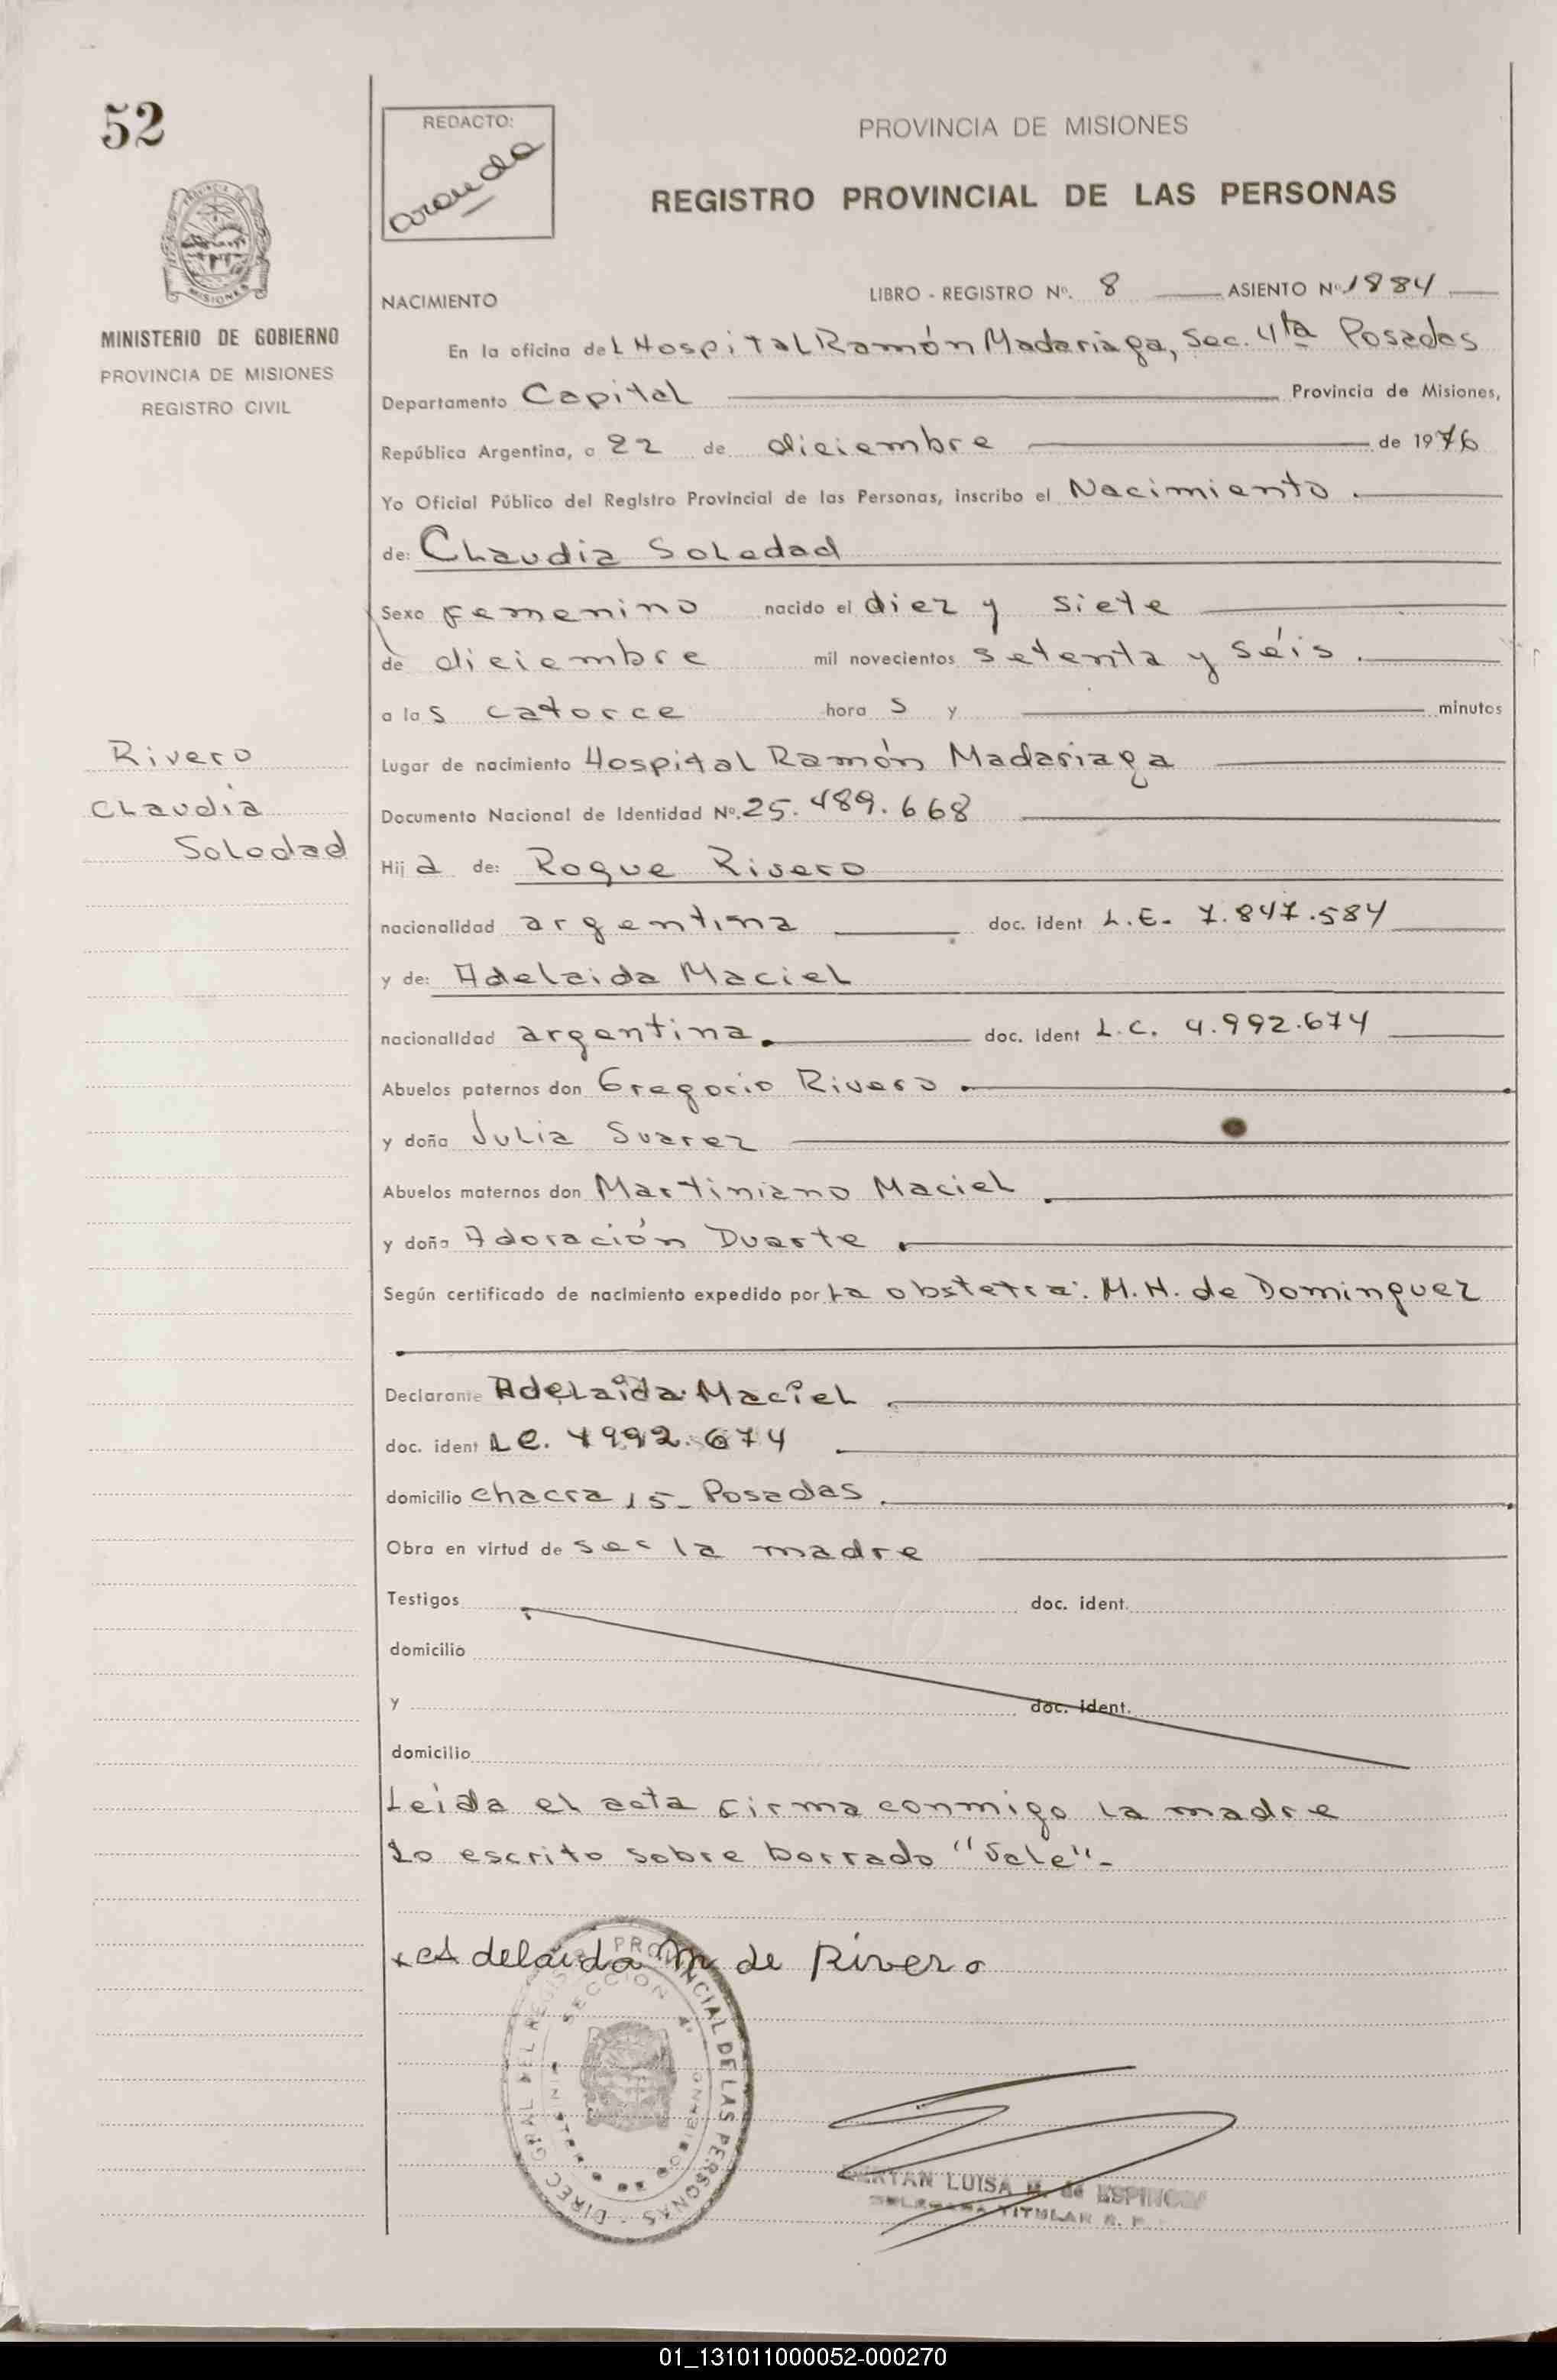 52
REDACTO:
PROVINCIA DE MISIONES
REGISTRO PROVINCIAL DE LAS PERSONAS
MINISTERIO DE GOBIERNO
PROVINCIA DE MISIONES
REGISTRO CIVIL
NACIMIENTO LIBRO - REGISTRO Nº. 8 ASIENTO Nº 1884
En la oficina del Hospital Ramón Madariaga, Sec. 4ta Posadas
Departamento Capital Provincia de Misiones,
República Argentina, a 22 de diciembre de 1976
Yo Oficial Público del Registro Provincial de las Personas, inscribo el Nacimiento.
de: Claudia Soledad
Sexo femenino nacido el diez y siete
de diciembre mil novecientos setenta y séis.
a las catorce horas y minutos
Rivero
Claudia
Soledad
Lugar de nacimiento Hospital Ramón Madariaga
Documento Nacional de Identidad Nº. 25.489.668
Hija de: Roque Rivero
nacionalidad argentina doc. ident L.E. 7.847.584
y de: Adelaida Maciel
nacionalidad argentina. doc. ident L.C. 4.992.674
Abuelos paternos don Gregorio Rivero.
y doña Julia Suarez
Abuelos maternos don Martiniano Maciel.
y doña Adoración Duarte.
Según certificado de nacimiento expedido por la obstetra: M.H. de Dominguez
Declarante Adelaida Maciel
doc. ident LC. 4992.674
domicilio chacra 15- Posadas.
Obra en virtud de ser la madre
Testigos doc. ident.
domicilio
y doc. ident.
domicilio
Leida el acta firma conmigo la madre
Lo escrito sobre borrado "Vale"-
Adelaida M de Rivero
DIREC. GRAL DEL REGISTRO PROVINCIAL DE LAS PERSONAS
SECCION 4ª
LUISA M. de ESPINOSA
TITULAR
01_131011000052-000270